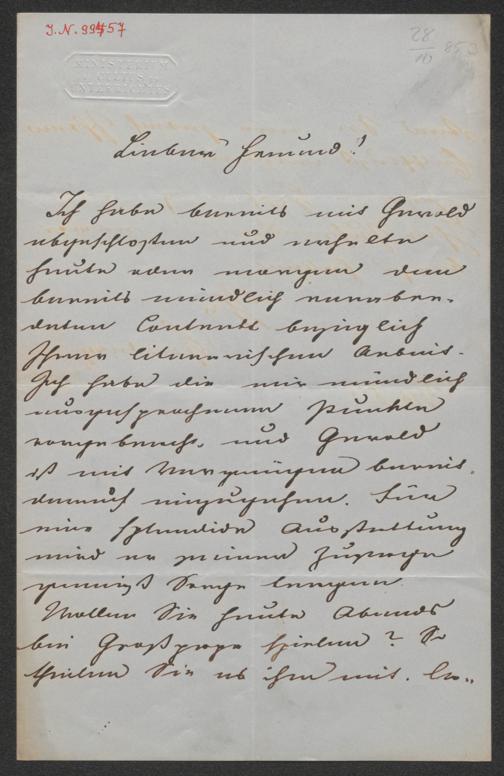 J.N. 99457
28
MINISTERIUM
CULTUS
UNTERRICHTES
Lieber Freund!
Ich habe bereits mit Gerold
abgeschlossen und erhalte
heute oder morgen den
bereits mündlich verabre-
deten Contract bezüglich
Ihrer literarischen Arbeit.
Ich habe die mir mündlich
ausgesprochenen Punkte
vorgebracht, und Gerold
ist mit Vergnügen bereit,
darauf einzugehen. Für
eine splendide Ausstattung
wird er seiner Zusage
gemäß Sorge tragen.
Wollen Sie heute Abends
bei Großpapa spielen? So
theilen Sie es ihm mit.